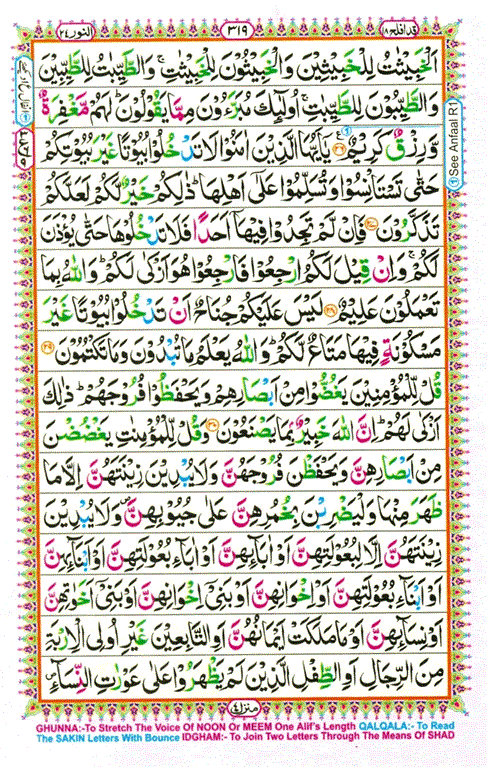 قد افلح ١٨
٣١٩
النور ٢٤
اَلْخَبِيْثٰتُ لِلْخَبِيْثِيْنَ وَالْخَبِيْثُوْنَ لِلْخَبِيْثٰتِ ۚ وَالطَّيِّبٰتُ لِلطَّيِّبِيْنَ
وَالطَّيِّبُوْنَ لِلطَّيِّبٰتِ ۚ اُولٰٓئِكَ مُبَرَّءُوْنَ مِمَّا يَقُوْلُوْنَ ؕ لَهُمْ مَّغْفِرَةٌ
وَّرِزْقٌ كَرِيْمٌ ﴿۲۶﴾ يٰۤاَيُّهَا الَّذِيْنَ اٰمَنُوْا لَا تَدْخُلُوْا بُيُوْتًا غَيْرَ بُيُوْتِكُمْ
حَتّٰى تَسْتَاْنِسُوْا وَتُسَلِّمُوْا عَلٰٓى اَهْلِهَا ؕ ذٰلِكُمْ خَيْرٌ لَّكُمْ لَعَلَّكُمْ
تَذَكَّرُوْنَ ﴿۲۷﴾ فَاِنْ لَّمْ تَجِدُوْا فِيْهَاۤ اَحَدًا فَلَا تَدْخُلُوْهَا حَتّٰى يُؤْذَنَ
لَكُمْ ۚ وَاِنْ قِيْلَ لَكُمُ ارْجِعُوْا فَارْجِعُوْا هُوَ اَزْكٰى لَكُمْ ؕ وَاللّٰهُ بِمَا
تَعْمَلُوْنَ عَلِيْمٌ ﴿۲۸﴾ لَيْسَ عَلَيْكُمْ جُنَاحٌ اَنْ تَدْخُلُوْا بُيُوْتًا غَيْرَ
مَسْكُوْنَةٍ فِيْهَا مَتَاعٌ لَّكُمْ ؕ وَاللّٰهُ يَعْلَمُ مَا تُبْدُوْنَ وَمَا تَكْتُمُوْنَ ﴿۲۹﴾
قُلْ لِّلْمُؤْمِنِيْنَ يَغُضُّوْا مِنْ اَبْصَارِهِمْ وَيَحْفَظُوْا فُرُوْجَهُمْ ؕ ذٰلِكَ
اَزْكٰى لَهُمْ ؕ اِنَّ اللّٰهَ خَبِيْرٌۢ بِمَا يَصْنَعُوْنَ ﴿۳۰﴾ وَقُلْ لِّلْمُؤْمِنٰتِ يَغْضُضْنَ
مِنْ اَبْصَارِهِنَّ وَيَحْفَظْنَ فُرُوْجَهُنَّ وَلَا يُبْدِيْنَ زِيْنَتَهُنَّ اِلَّا مَا
ظَهَرَ مِنْهَا وَلْيَضْرِبْنَ بِخُمُرِهِنَّ عَلٰى جُيُوْبِهِنَّ ۪ وَلَا يُبْدِيْنَ
زِيْنَتَهُنَّ اِلَّا لِبُعُوْلَتِهِنَّ اَوْ اٰبَآئِهِنَّ اَوْ اٰبَآءِ بُعُوْلَتِهِنَّ اَوْ اَبْنَآئِهِنَّ
اَوْ اَبْنَآءِ بُعُوْلَتِهِنَّ اَوْ اِخْوَانِهِنَّ اَوْ بَنِيْۤ اِخْوَانِهِنَّ اَوْ بَنِيْۤ اَخَوٰتِهِنَّ
اَوْ نِسَآئِهِنَّ اَوْ مَا مَلَكَتْ اَيْمَانُهُنَّ اَوِ التّٰبِعِيْنَ غَيْرِ اُولِى الْاِرْبَةِ
مِنَ الرِّجَالِ اَوِ الطِّفْلِ الَّذِيْنَ لَمْ يَظْهَرُوْا عَلٰى عَوْرٰتِ النِّسَآءِ ۪
منزل ٤
① See Anfaal R1
GHUNNA:-To Stretch The Voice Of NOON Or MEEM One Alif's Length QALQALA:- To Read
The SAKIN Letters With Bounce IDGHAM:- To Join Two Letters Through The Means Of SHAD